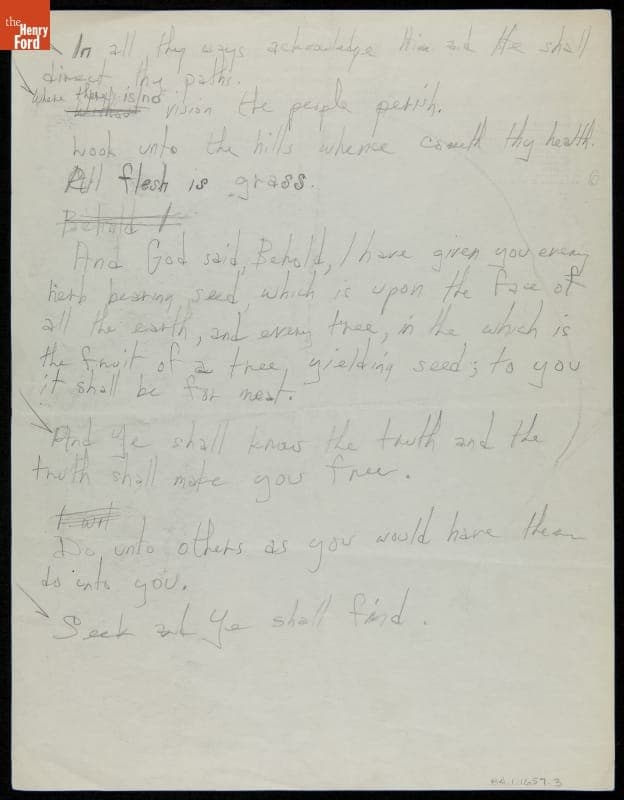 the
Henry
Ford
In all thy ways acknowledge Him and He shall
direct thy paths.
Where there is no
without vision the people perish.
Look unto the hills whence cometh thy health.
All flesh is grass.
Behold I
And God said, Behold, I have given you every
herb bearing seed, which is upon the face of
all the earth, and every tree, in the which is
the fruit of a tree yielding seed; to you
it shall be for meat.
And Ye shall know the truth and the
truth shall make you free.
I will
Do unto others as you would have them
do unto you.
Seek and Ye shall find.
64.1.1657.3